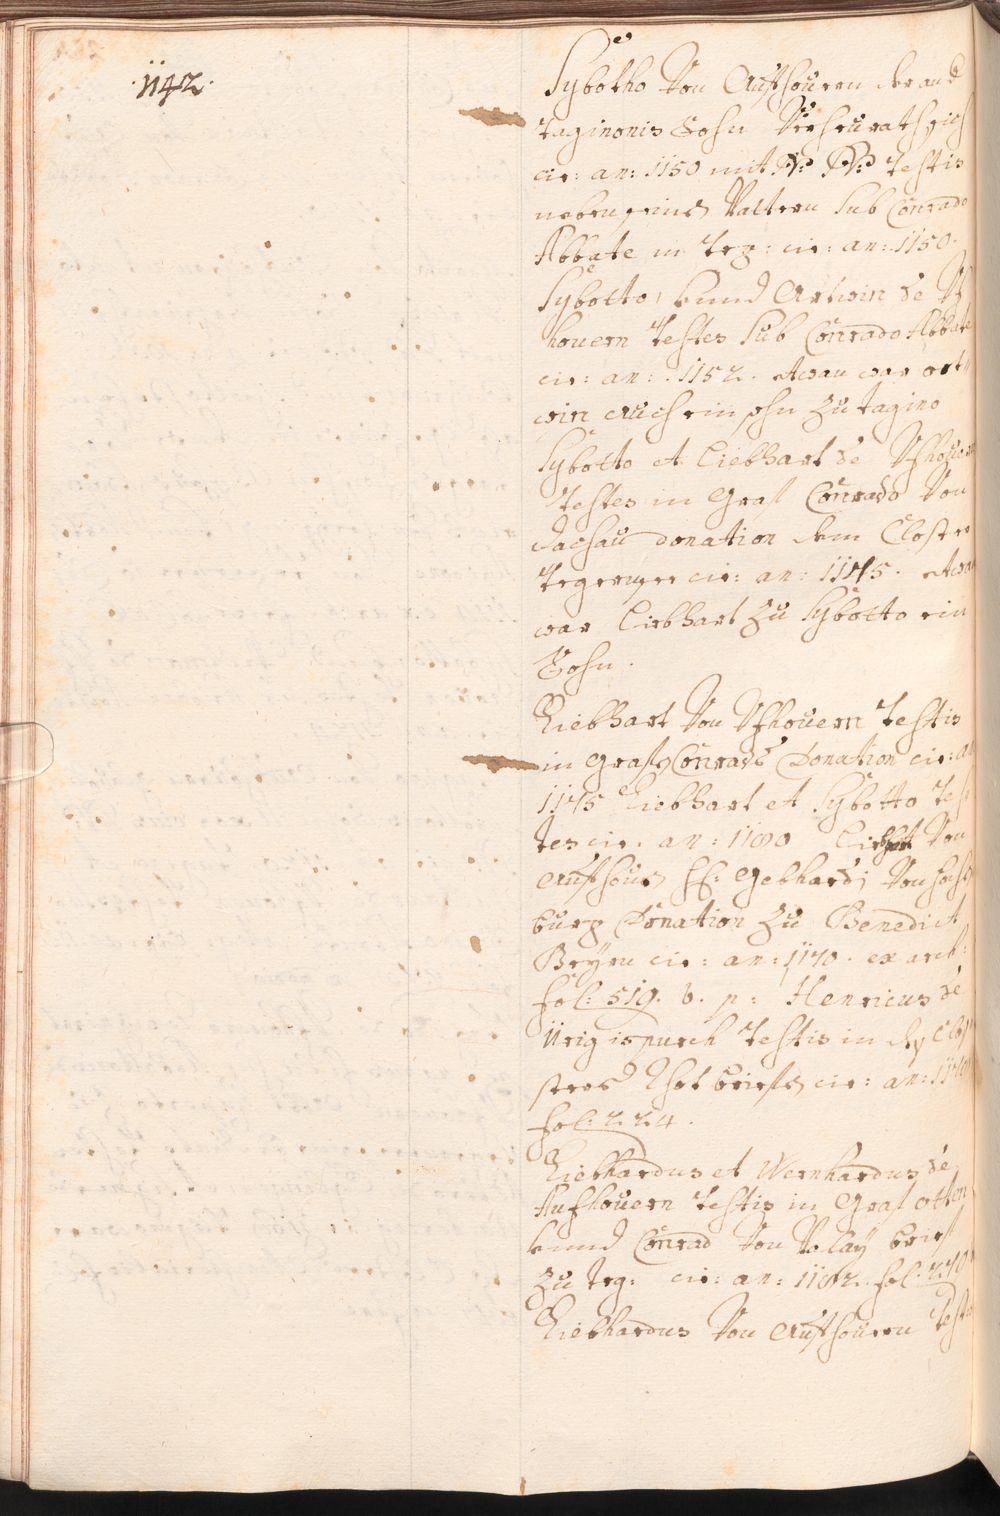 1142.
Sÿbotho Von Aufhouern der and
taginonis Sohn Verheurath sich
cir: an: 1150 mit N: N: testis
neben seinen Vattern sub Conrado
Abbate in Teg: cir: an: 1150.
Sÿbotto, unnd Artwin de
houern Testes sub Conrado Abbate
cir: an: 1152. etwan war ort
win auch ein sohn zu tagino
Sÿbotto et Liebhart de Ufhouern
testes in Graf Conrado Von
dachau donation dem Closter
tegernsee cir: an: 1175. etwan
war Liebhart zu Sÿbotto ein
Sohn.
Liebhart Von Ufhouern testis
in Grafen Conrads Donation cir: an
1175 Liebhart et Sÿbotto tes
tes cir. an: 1180 Von
Aufhoue Gebhardi Von hoch
burg Donation zu Benedict
Beÿrn cir: an: 1170. ex arch:
fol: 519. b. p: Henricus de
Ürigispurch testis in Clo
sters briefs cir: an:
fol: 224.
Liebhardus et Wernhardus de
Aufhouern testis in Graf otten
unnd Conrad Von Valaÿ brief
zu teg: cir: an: 1182. fol:
Liebhardus Von Aufhouern